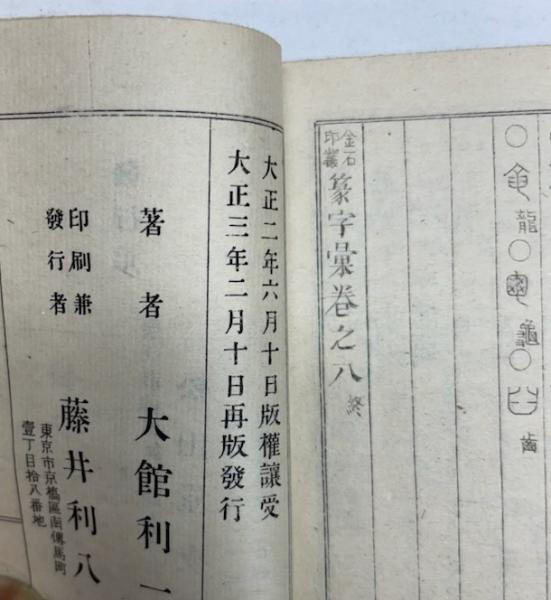 龍
龜
齒
金石
印叢
篆字彙卷之八 終
大正二年六月十日版權讓受
大正三年二月十日再版發行
著者 大館利一
印刷兼
發行者
藤井利八
東京市京橋區南傳馬町
壹丁目拾八番地